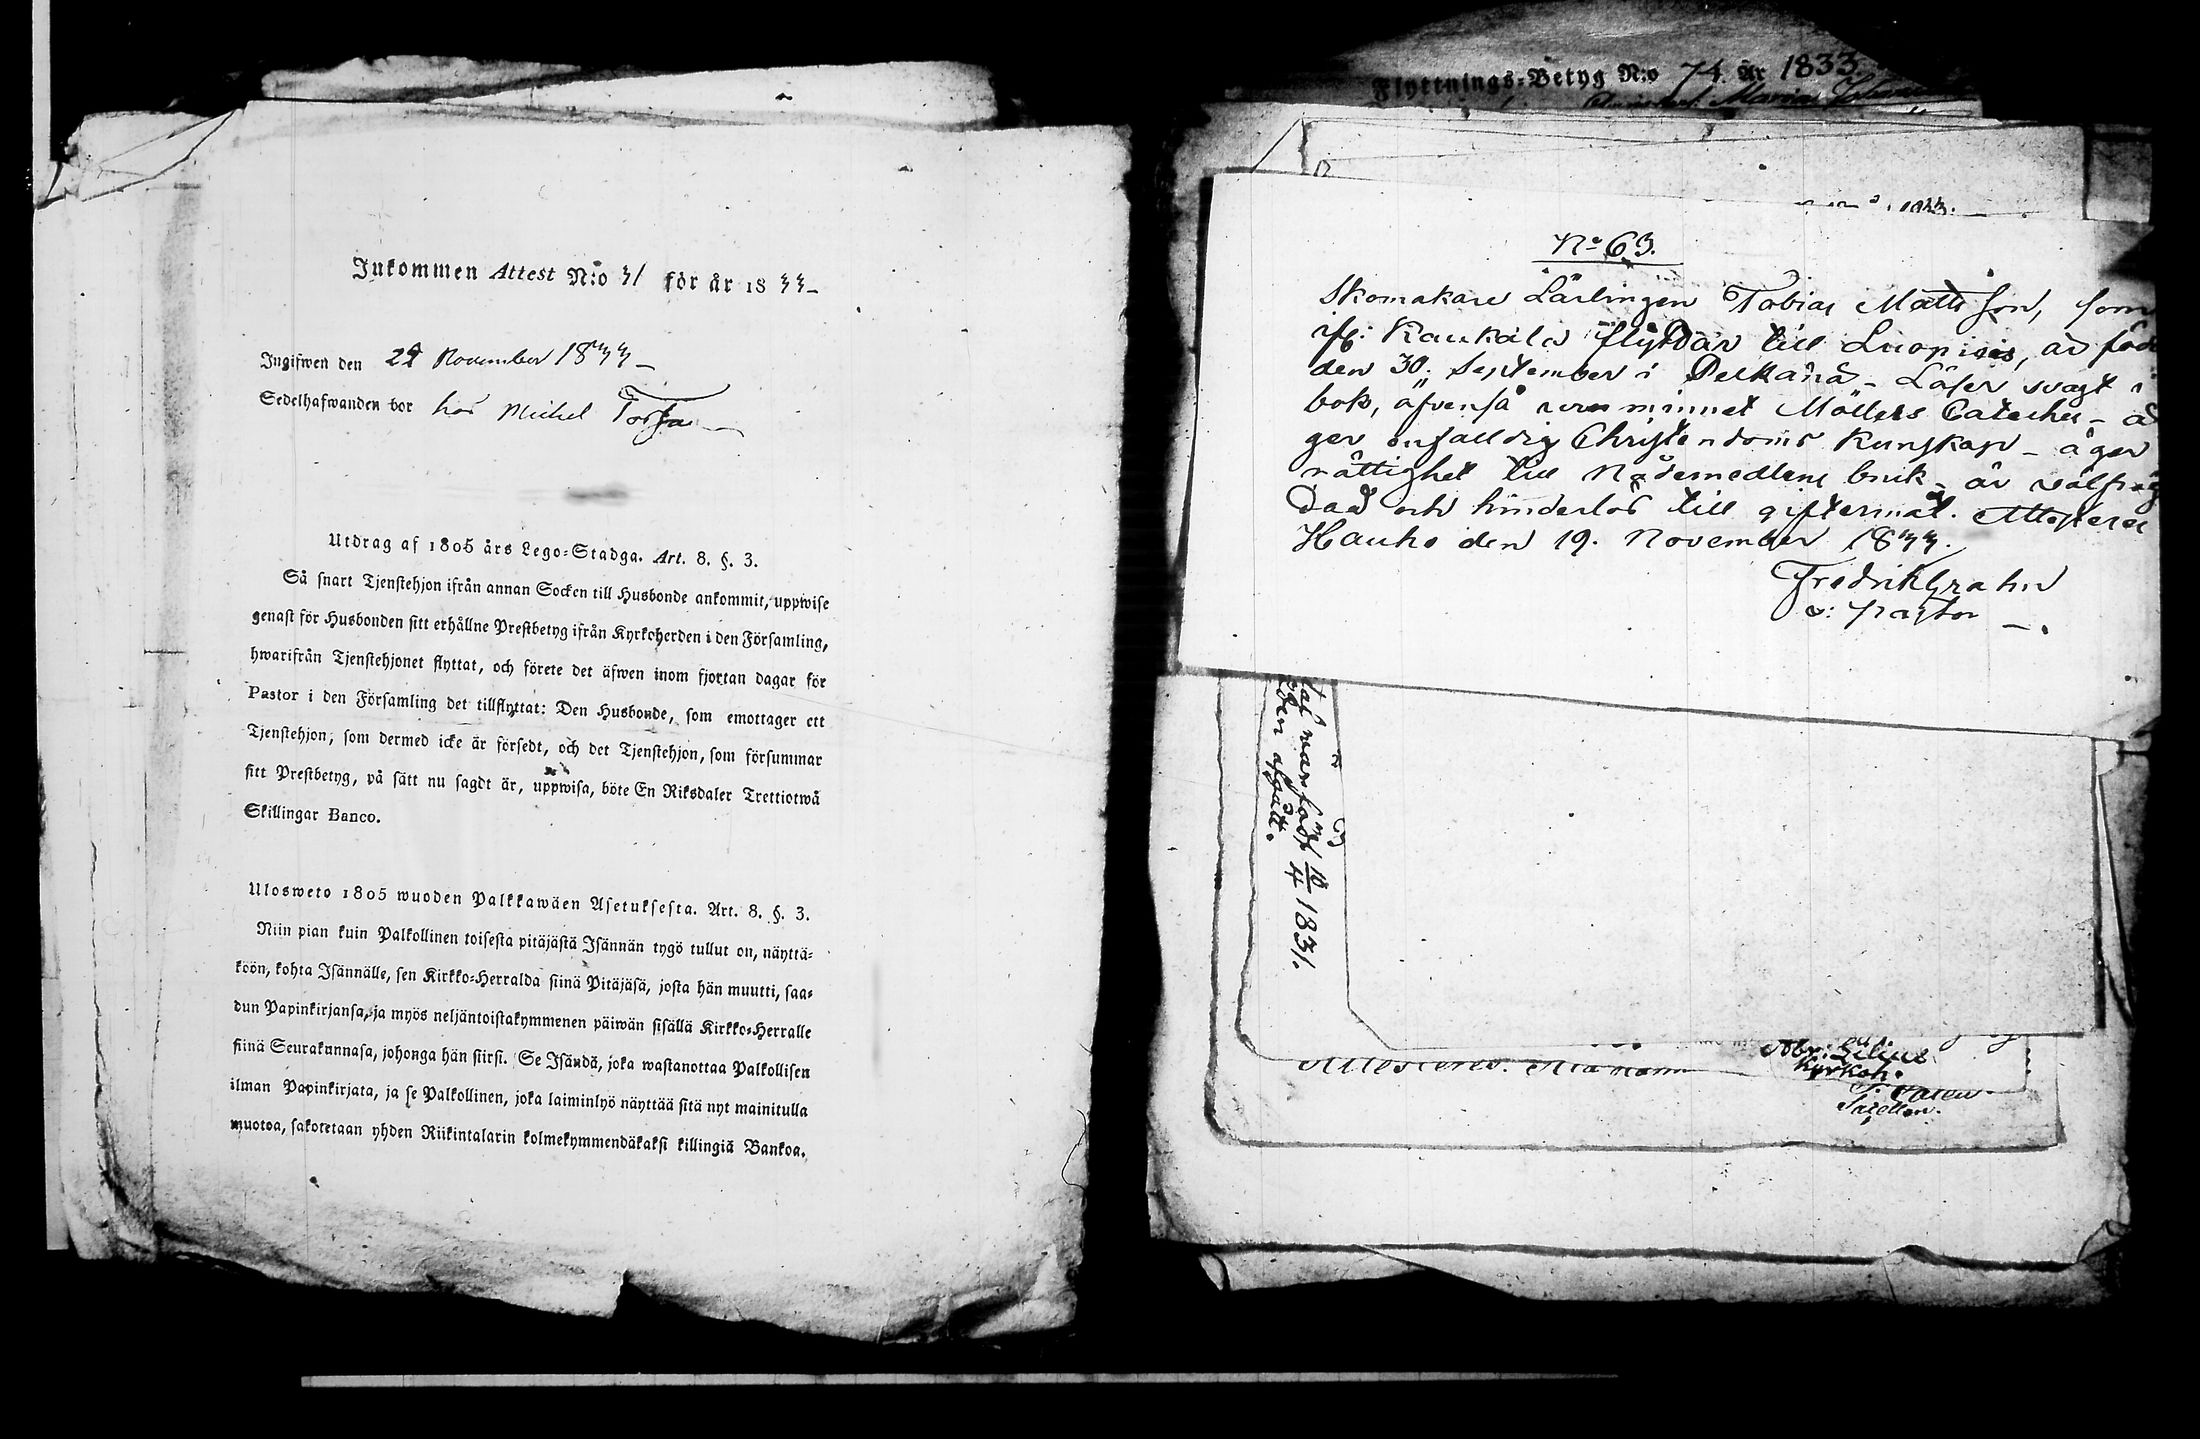 Inkommen Attest N:o 31 för år 1833
Ingifwen den 24 November 1833
Sedelhafwanden bor hos Michel Torfa
Utdrag af 1805 års Lego-Stadga. Art. 8. §. 3.
Så snart Tjenstehjon ifrån annan Socken till Husbonde ankommit, uppwise
genast för Husbonden sitt erhållne Prestbetyg ifrån Kyrkoherden i den Församling,
hwarifrån Tjenstehjonet flyttat, och förete det äfwen inom fjortan dagar för
Pastor i den Församling det tillflyttat: Den Husbonde, som emottager ett
Tjenstehjon, som dermed icke är försedt, och det Tjenstehjon, som försummar
sitt Prestbetyg, på sätt nu sagdt är, uppwisa, böte En Riksdaler Trettiotwå
Skillingar Banco.
Ulosweto 1805 wuoden Palkkawäen Asetuksesta. Art. 8. §. 3.
Niin pian kuin Palkollinen toisesta pitäjästä Isännän tygö tullut on, näyttä-
köön, kohta Isännälle, sen Kirkko-Herralda siinä Pitäjäsä, josta hän muutti, saa-
dun Papinkirjansa, ja myös neljäntoistakymmenen päiwän sisällä Kirkko-Herralle
siinä Seurakunnasa, johonga hän siirsi. Se Isändä, joka wastanottaa Palkollisen
ilman Papinkirjata, ja se Palkollinen, joka laiminlyö näyttää sitä nyt mainitulla
muotoa, sakotetaan yhden Riikintalarin kolmekymmendäkaksi killingiä Bankoa.
Flyttnings-Betyg N:o 74. År 1833
Maria
1833.
No 63.
Skomakare Lärlingen Tobias Matts son, som
ifr: Kaukala flyttar till Luopiois, är föd
den 30. September i Pelkänä - Läser svagt i
bok, äfvenså utur minnet Möllers Cateches - ä
ger enfalldig Christendoms Kunskap - äger
rättighet till Nådemedlens bruk - är välfräg
dad och hinderlös till giftermål. Attesterar
Hauho den 19. November 1833.
Fredrik Grahn
v: Pastor
taf var född 10/4 1831.
afgått.
Abr: Lilius
Kyrkoh.